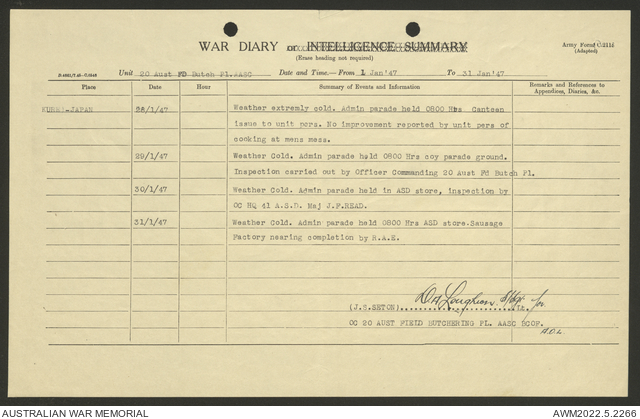 WAR DIARY or INTELLIGENCE SUMMARY
(Erase heading not required)
Army Form C.2118
(Adapted)
Unit 20 Aust FD Butch Pl.AASC Date and Time—From 1 Jan '47 To 31 Jan '47
Place Date Hour Summary of Events and Information Remarks and References to
Appendices, Diaries, &c.
KURE.-JAPAN 28/1/47 Weather extremely cold. Admin parade held 0800 Hrs Canteen
issue to unit pers. No improvement reported by unit pers of
cooking at mens mess.
29/1/47 Weather Cold. Admin parade held 0800 Hrs coy parade ground.
Inspection carried out by Officer Commanding 20 Aust Fd Butch Pl.
30/1/47 Weather Cold. Admin parade held in ASD store, inspection by
OC HQ 41 A.S.D. Maj J.F.READ.
31/1/47 Weather Cold. Admin parade held 0800 Hrs ASD store.Sausage
Factory nearing completion by R.A.E.
(J.S.SETON) Lt. for
OC 20 AUST FIELD BUTCHERING PL. AASC BCOF.
AUSTRALIAN WAR MEMORIAL AWM2022.5.2266